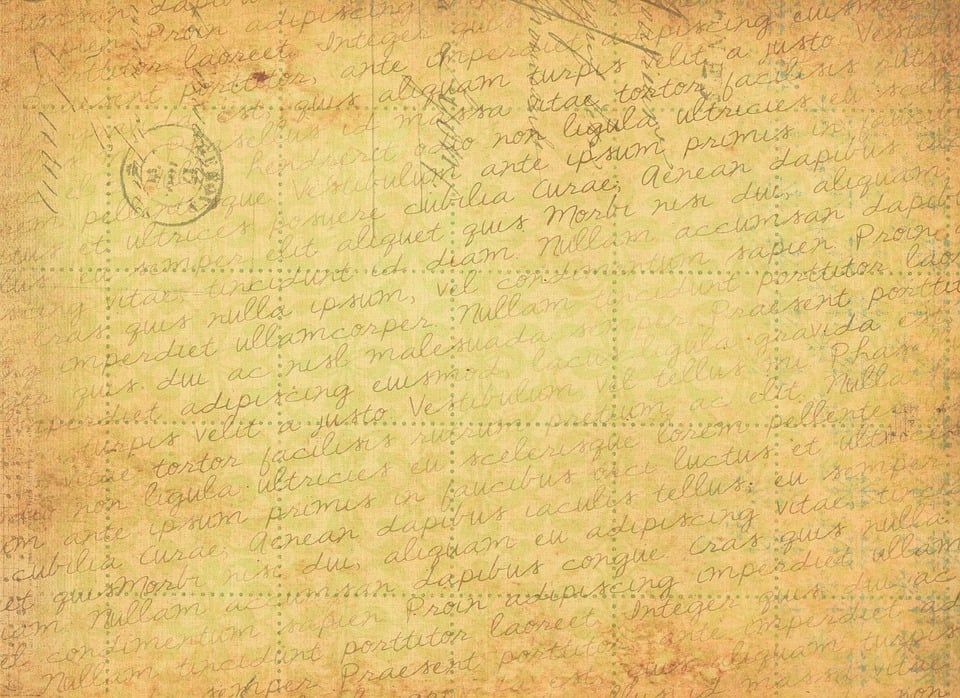 sapien Proin adipiscing
porttitor laoreet. Integer quis
porttitor, ante imperdiet adipiscing euismod
est, quis aliquam turpis velit a justo
id massa vitae tortor facilisis
hendrerit odio non ligula ultricies eu
Vestibulum ante ipsum primis in
et ultrices posuere cubilia Curae; Aenean dapibus
semper elit aliquet quis Morbi nisi dui, aliquam
vitae, tincidunt id diam. Nullam accumsan dapibu
cras quis nulla ipsum, vel condimentum sapien. Proin
imperdiet ullamcorper. Nullam tincidunt porttitor laor
quis dui ac nisl malesuada semper. Praesent porttit
imperdiet adipiscing euismod lacus ligula gravida est
turpis velit a justo. Vestibulum vel tellus mi Phas
vitae tortor facilisis rutrum pretium ac elit. Nulla
non ligula ultricies eu scelerisque lorem pellente
em ante ipsum primis in faucibus orci luctus et ultrices
cubilia Curae; Aenean dapibus iaculis tellus, eu semper
et quis Morbi nisi dui, aliquam eu adipiscing vitae, tincid
iam Nullam accumsan dapibus congue. Cras quis nulla
el condimentum sapien Proin adipiscing imperdiet ullam
Nullam tincidunt porttitor laoreet. Integer quis dui ac
semper Praesent porttitor, ante imperdiet ad
est, quis aliquam turpis
massa vitae